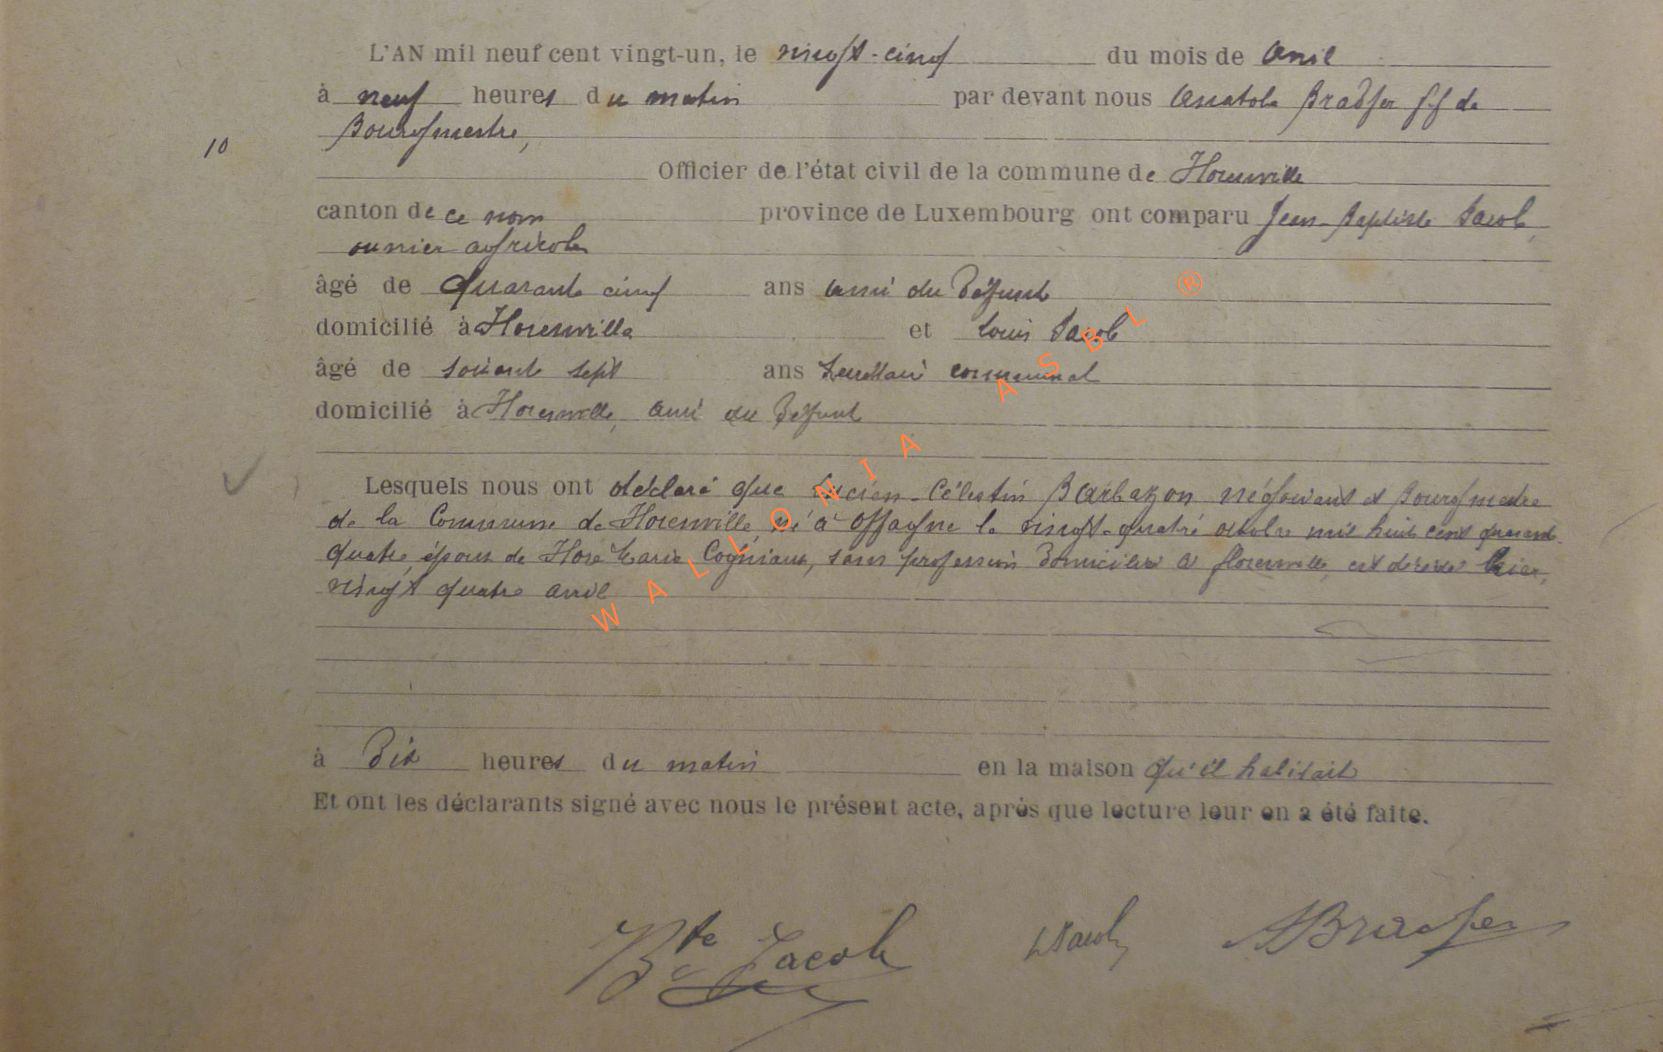 L'AN mil neuf cent vingt-un, le vingt-cinq du mois de avril
à neuf heures du matin par devant nous Anatole Bradfer ff de
Bourgmestre,
10
Officier de l'état civil de la commune de Florenville
canton de ce nom province de Luxembourg ont comparu Jean-Baptiste Jacob,
ouvrier agricole
âgé de quarante cinq ans ami du défunt
domicilié à Florenville et Louis Jacob
âgé de soixante sept ans secrétaire communal
domicilié à Florenville, ami du défunt
Lesquels nous ont déclaré que Lucien-Célestin Barbazon négociant et Bourgmestre
de la Commune de Florenville, né à Offagne le vingt-quatre octobre mil huit cent quarante-
quatre, époux de Marie Cogniaux, sans profession domiciliée à Florenville, est décédé hier,
vingt quatre avril
à Dix heures du matin en la maison qu'il habitait
Et ont les déclarants signé avec nous le présent acte, après que lecture leur en a été faite.
Bte Jacob LJacob ABradfer
WALLONIA ASBL ®